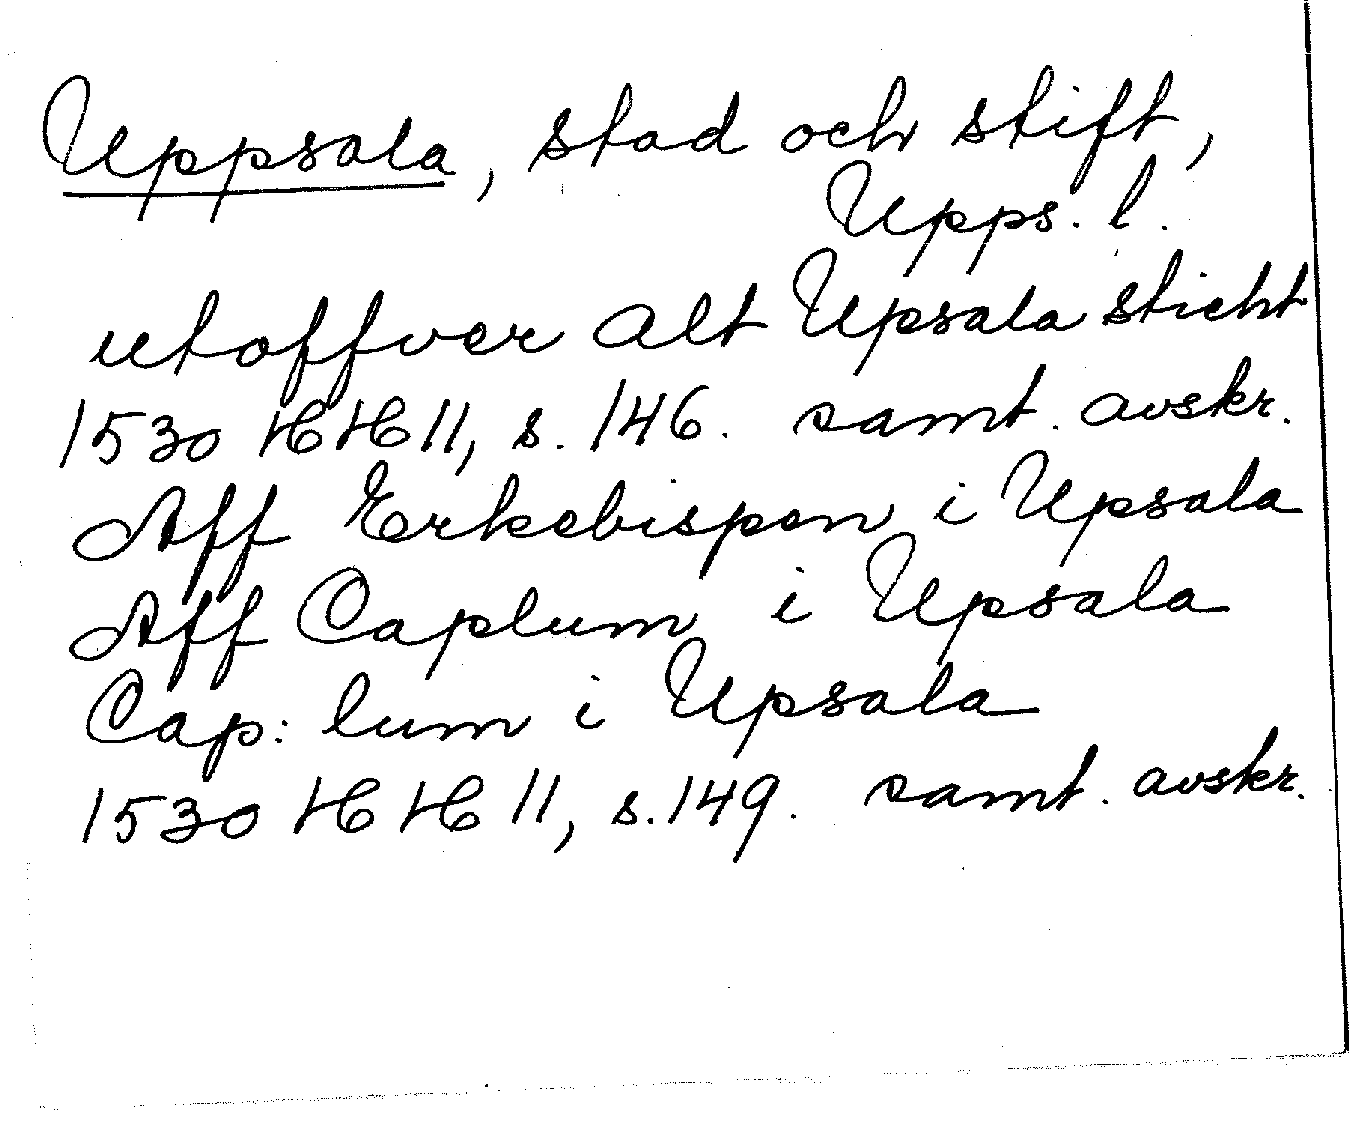 Uppsala, stad och stift,
Upps. l.
utoffver alt Upsala sticht
1530 HH 11, s. 146. samt. avskr.
Aff Erkebispen i Upsala
Aff Caplum i Upsala
Cap: lum i Upsala
1530 HH 11, s. 149. samt. avskr.